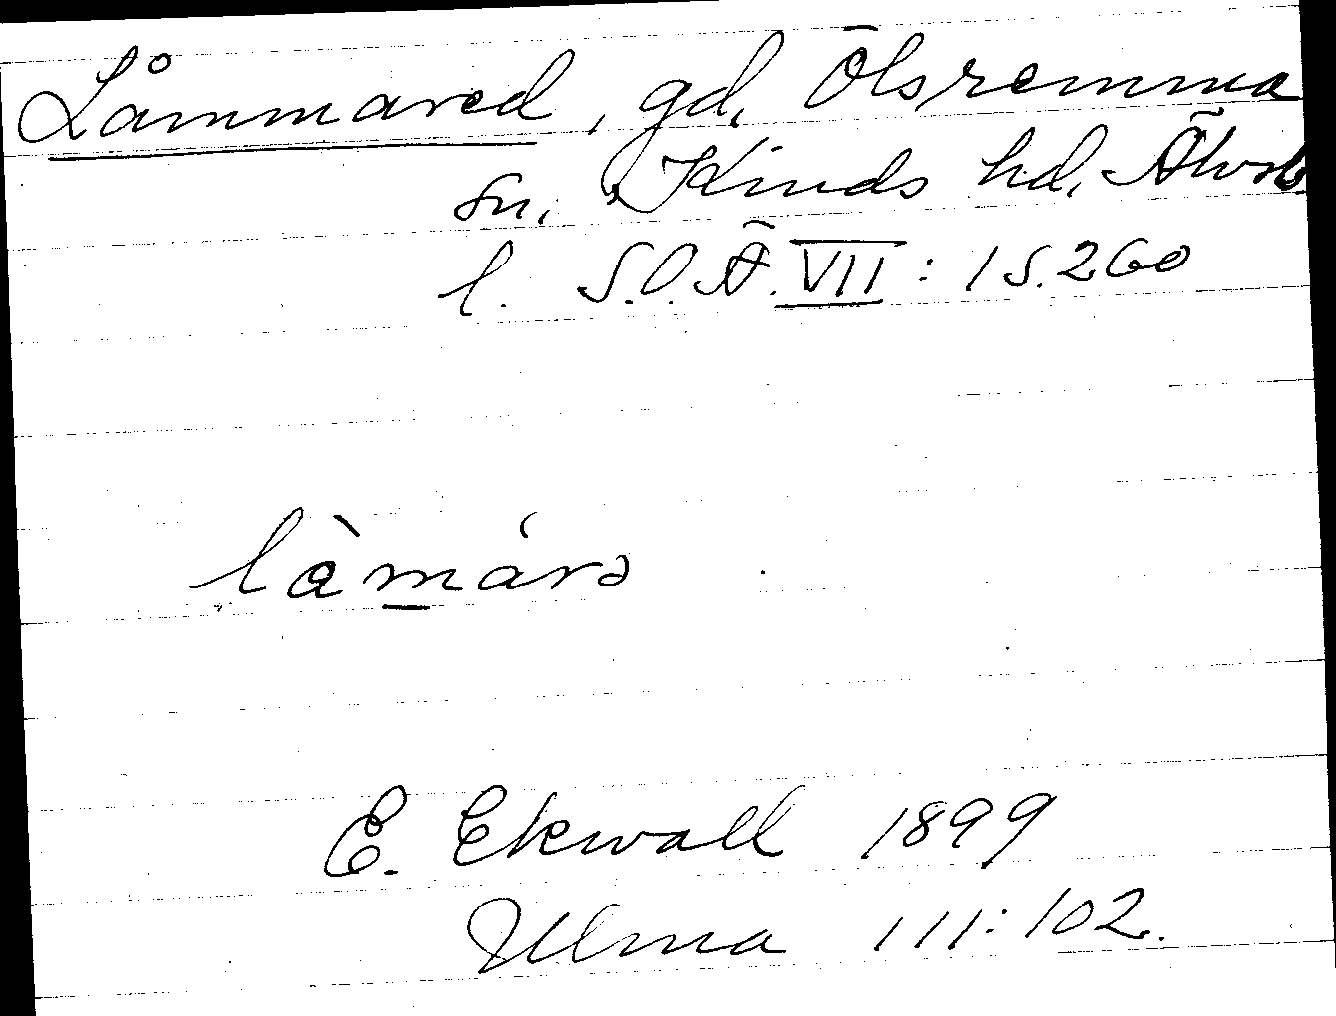 Låmmared, gd, Ölsremma
sn, Kinds hd, Älvsb.
l. S.O.Ä. VII : 1 S. 260
làmárə
E. Ekwall 1899
Ulma 111:102.